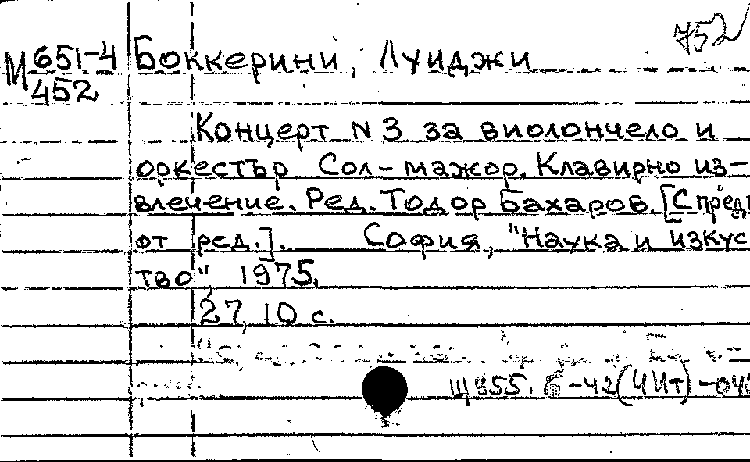 752
М 651-4 Боккерини, Луиджи
452
Концерт N 3 за виолончело и
оркестър Сол-мажор. Клавирно из-
влечение. Ред. Тодор Бахаров. [С предг
от ред.]. София, "Наука и изкус
тво", 1975.
27, 10 с.
Щ355.6-42(4Ит)-04